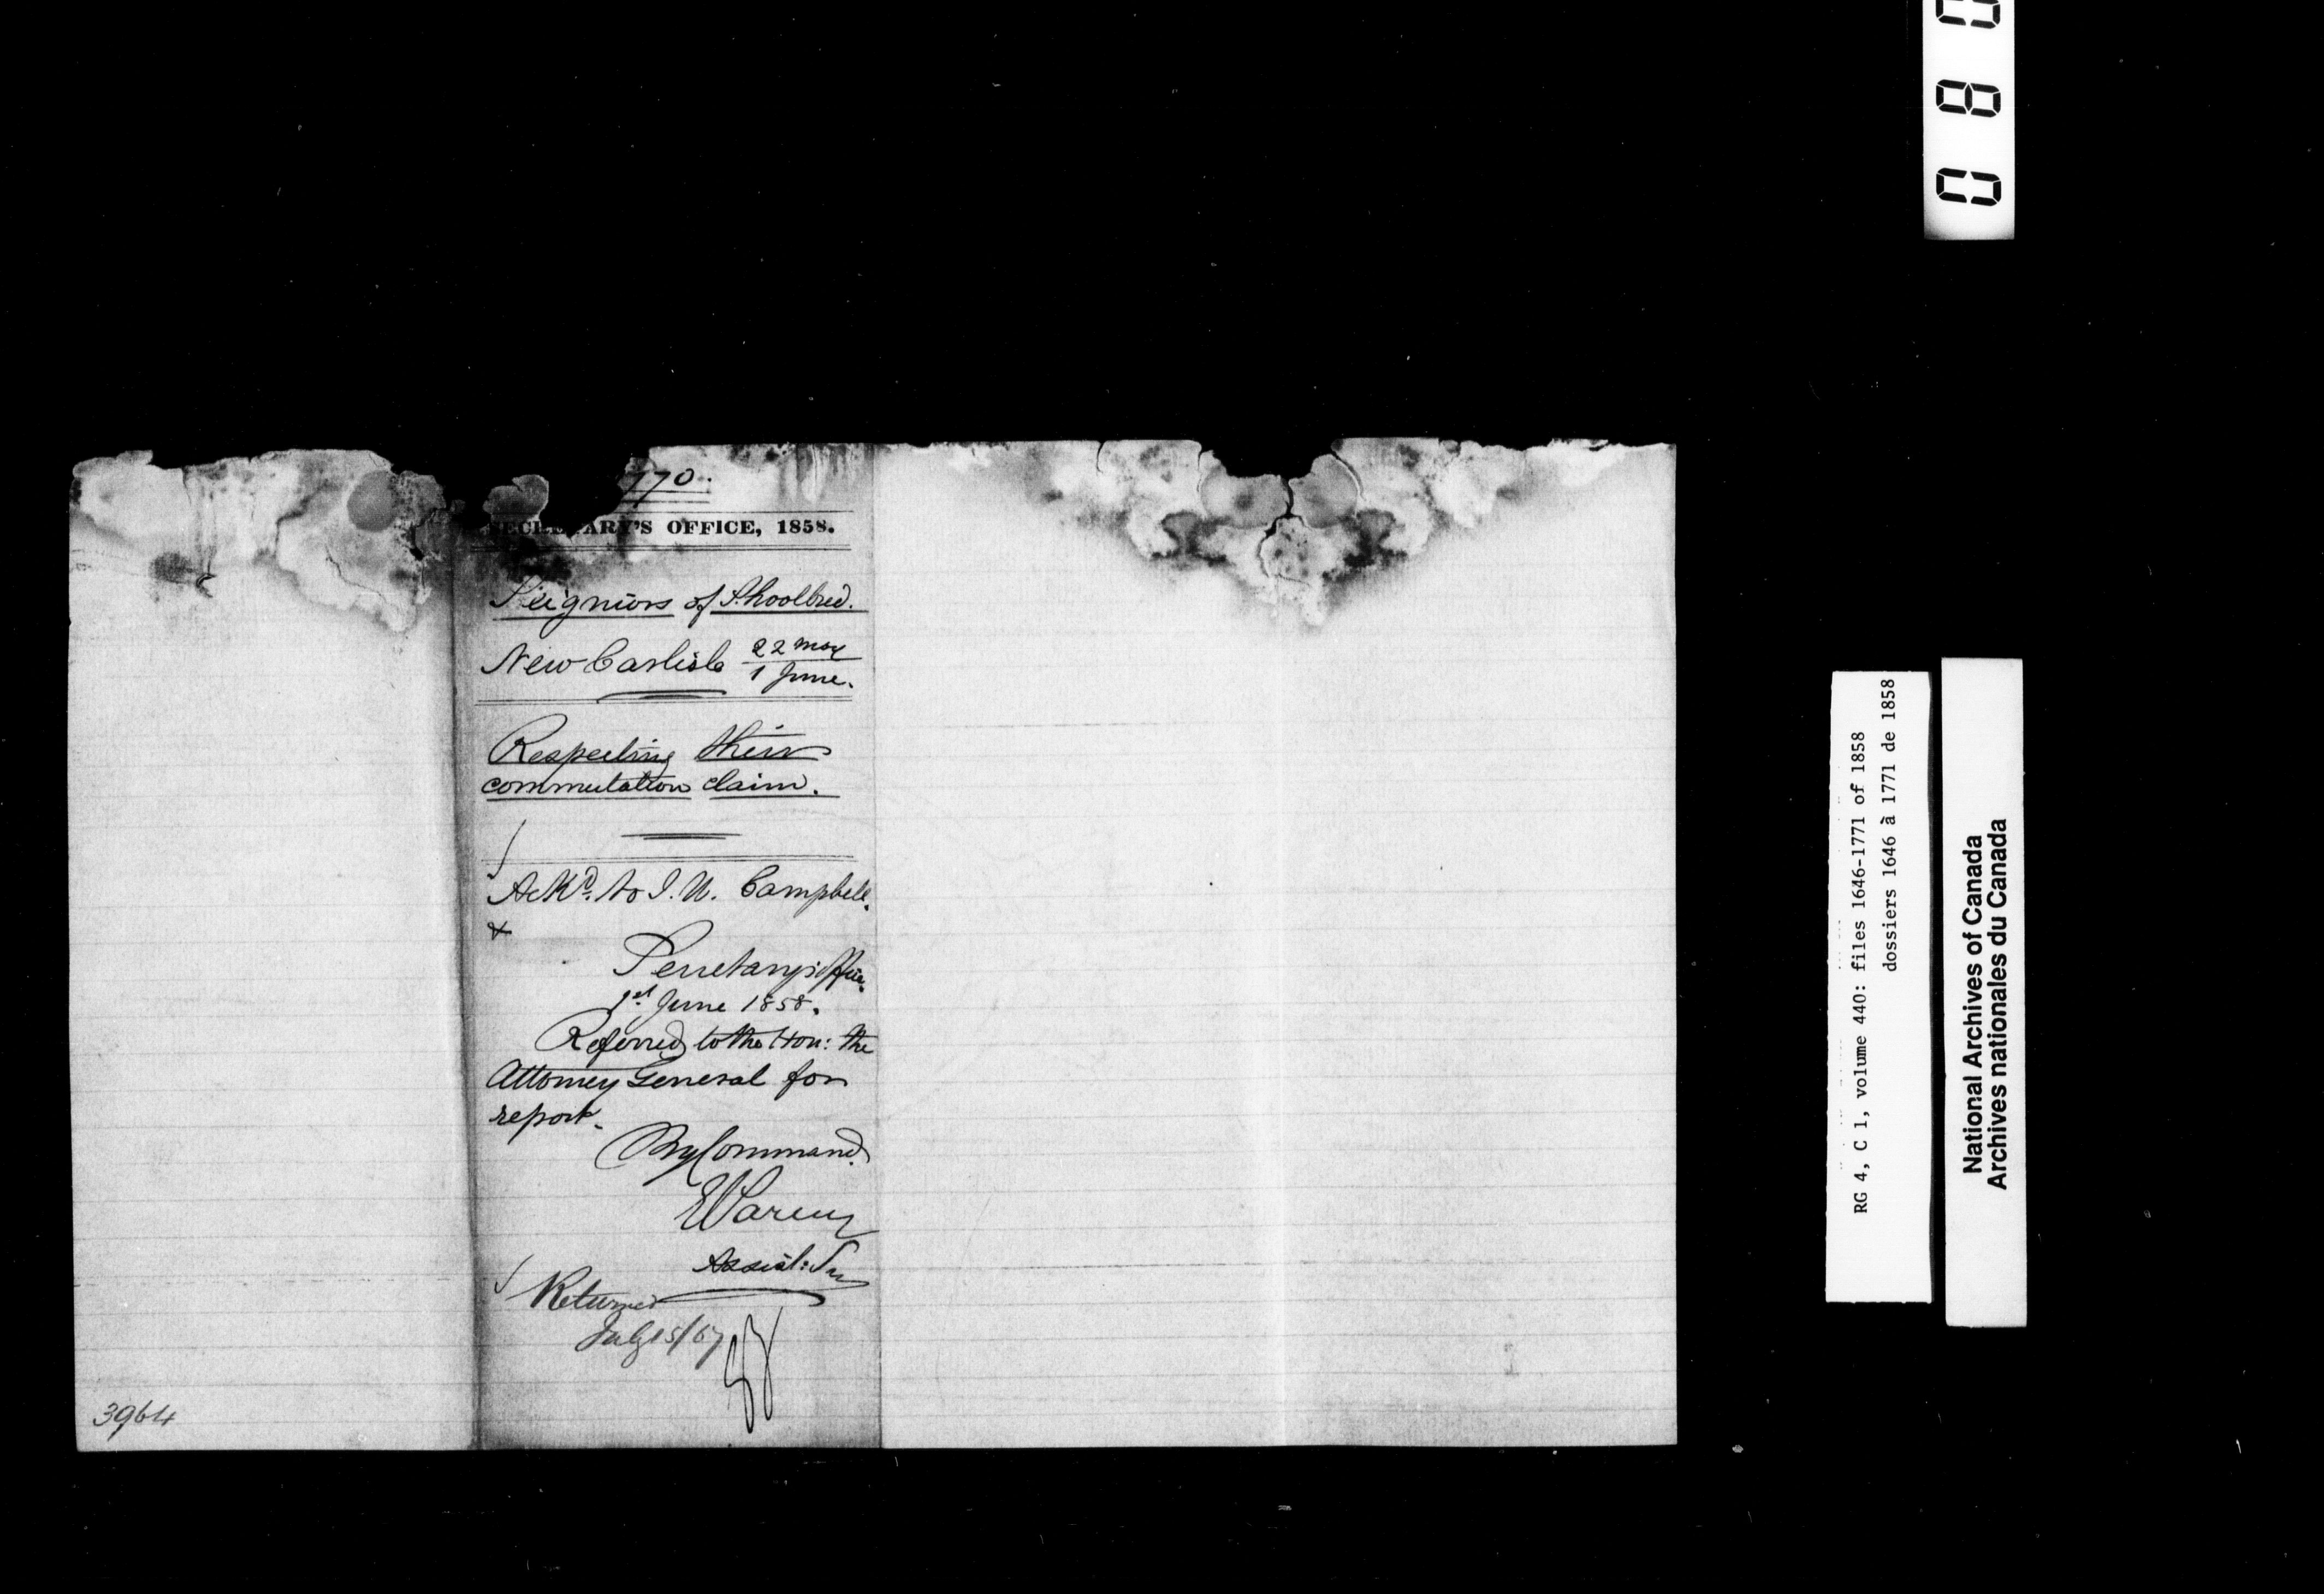 770.
SECRETARY'S OFFICE, 1858.
Seigniors of Shoolbred.
New Carlisle 22 May
1 June.
Respecting their
commutation claim.
Ackd. to I. U. Campbell.
Secretary's Office.
1st June 1858.
Referred to the Hon: the
Attorney General for
report.
By Command.
E Parent
Assist: Sec
Returned
July 15/67
3964
0 8 0
RG 4, C 1, volume 440: files 1646-1771 of 1858
dossiers 1646 à 1771 de 1858
National Archives of Canada
Archives nationales du Canada